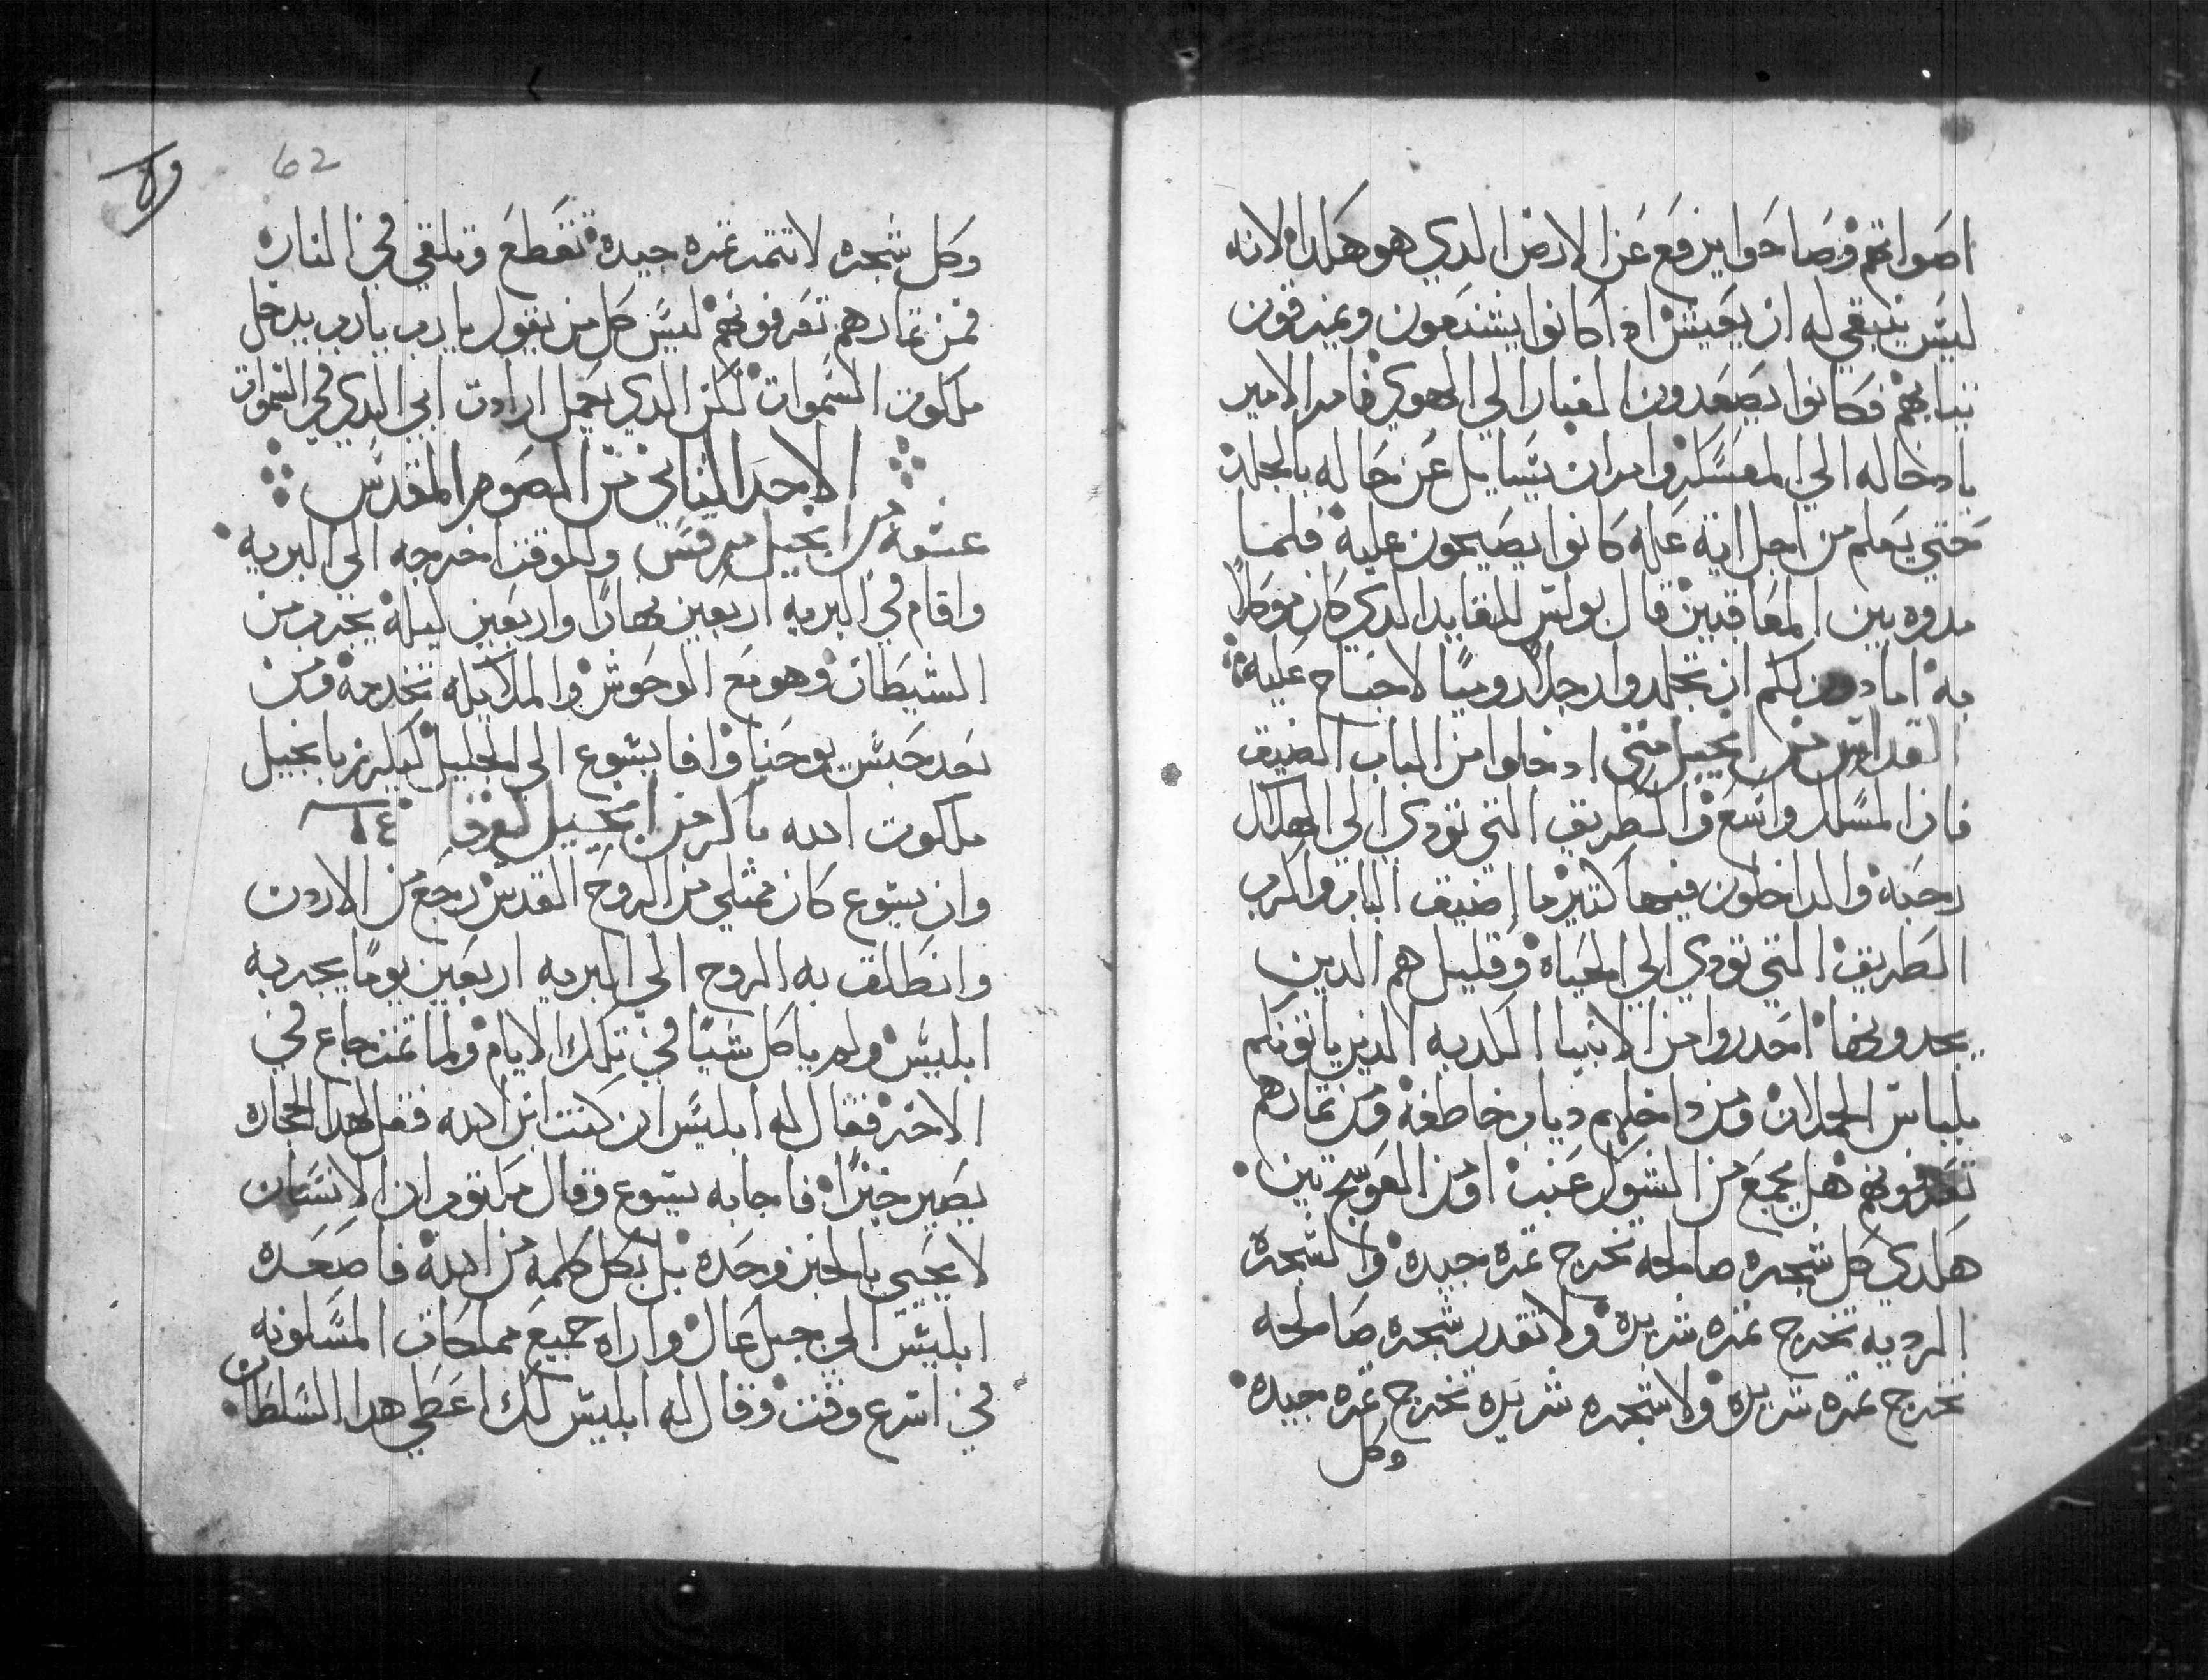 اصواتهم وصاحوا يرفع عن الارض الدي هو هكدا لانه
ليس ينبغي له ان يعيش اد كانوا يشنعون ويمزقون
تيابهم فكانوا يصعدون الغبار الي الهوي فامر الامير
بادخاله الي المعسكر وامر ان يتسايل عن حاله بالجلد
حتي يعلم من اجل اية عله كانوا يصيحون عليه فلما
مدوه بين المعاقبين قال بولس للقايد الدي كان موكلا
به امادون لكم ان تجلدوا رجلا روميا لا جناح عليه
القداس من انجيل متي ادخلوا من الباب الضيق
فان المسلك واسع والطريق التي تودي الي الهلاك
رحبه والداخلون فيها كتير ما اضيق الباب واكرب
الطريق التي تودي الي الحياه وقليل هم الدين
يجدونها احدروا من الانبيا الكدبه الدين ياتونكم
بلباس الحملان ومن داخلهم دياب خاطفه ومن تمارهم
تعرفونهم هل يجمع من الشوك عنب او من العوسج تين
هكدي كل شجره صالحه تخرج تمره جيده والشجره
الرديه تخرج تمره شريره ولا تقدر شجره صالحه
تخرج تمره شريره ولا شجره شريره تخرج تمره جيده
وكل
62
وكل شجره لا تتمر تمره جيده تقطع وتلقي في النار
فمن تمارهم تعرفونهم ليس كل من يقول يارب يارب يدخل
ملكوت السموات لكن الدي يعمل ارادت ابي الدي في السموات
الاحد التاني من الصوم المقدس
عشية من انجيل مرقس وللوقت اخرجه الي البريه
واقام في البريه اربعين نهارا واربعين ليله يجرب من
الشيطان وهو مع الوحوش والملايكه تخدمه ومن
بعد حبس يوحنا وافا يسوع الي الجليل يكرز بانجيل
ملكوت الله باكر من انجيل لوقا
وان يسوع كان ممتلي من الروح القدس رجع من الاردن
وانطلق به الروح الي البريه اربعين يوما يجربه
ابليس ولم ياكل شيا في تلك الايام ولما تمت جاع في
الاخر فقال له ابليس ان كنت ابن الله فقل لهدا الحجاره
يصير خبزا فاجابه يسوع وقال مكتوب ان الانسان
لا يحيي بالخبز وحده بل بكل كلمه من الله فاصعده
ابليس الي جبل عال واراه جميع مملكات المسكونه
في اسرع وقت وقال له ابليس لك اعطي هدا السلطان